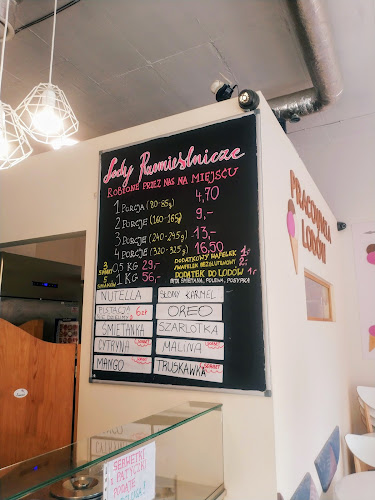 Lody Rzemieślnicze
ROBIONE PRZEZ NAS NA MIEJSCU
1 PORCJA (80-85g) 4,70
2 PORCJE (160-165g) 9,-
3 PORCJE (240-245g) 13,-
4 PORCJE (320-325g) 16,50
3 SMAKI 0,5 KG 29,-
5 SMAKÓW 1 KG 56,-
DODATKOWY WAFELEK 1zł
WAFELEK BEZGLUTENOWY 2zł
DODATEK DO LODÓW 1zł
BITA ŚMIETANA, POLEWA, POSYPKA
NUTELLA
SŁONY KARMEL
PISTACJA 6zł
OREO
ŚMIETANKA
SZARLOTKA
CYTRYNA SORBET
MALINA SORBET
MANGO SORBET
TRUSKAWKA SORBET
PRACOWNIA
LODÓW
SERWETKI
I PATYCZKI